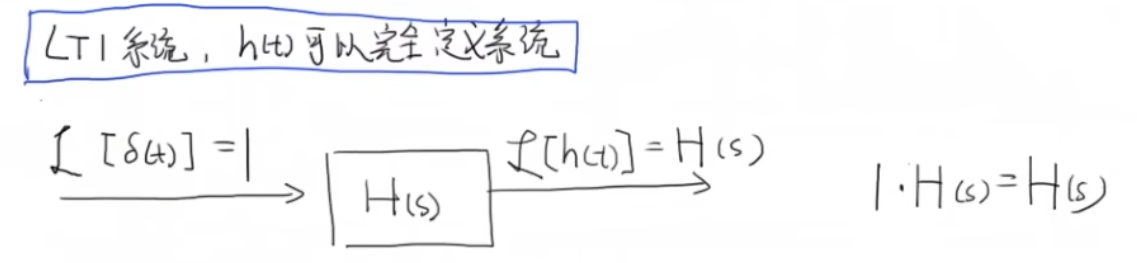 LTI 系统，h(t)可以完全定义系统
ℒ [δ(t)] = 1
ℒ[h(t)] = H(s)
H(s)
1·H(s)=H(s)